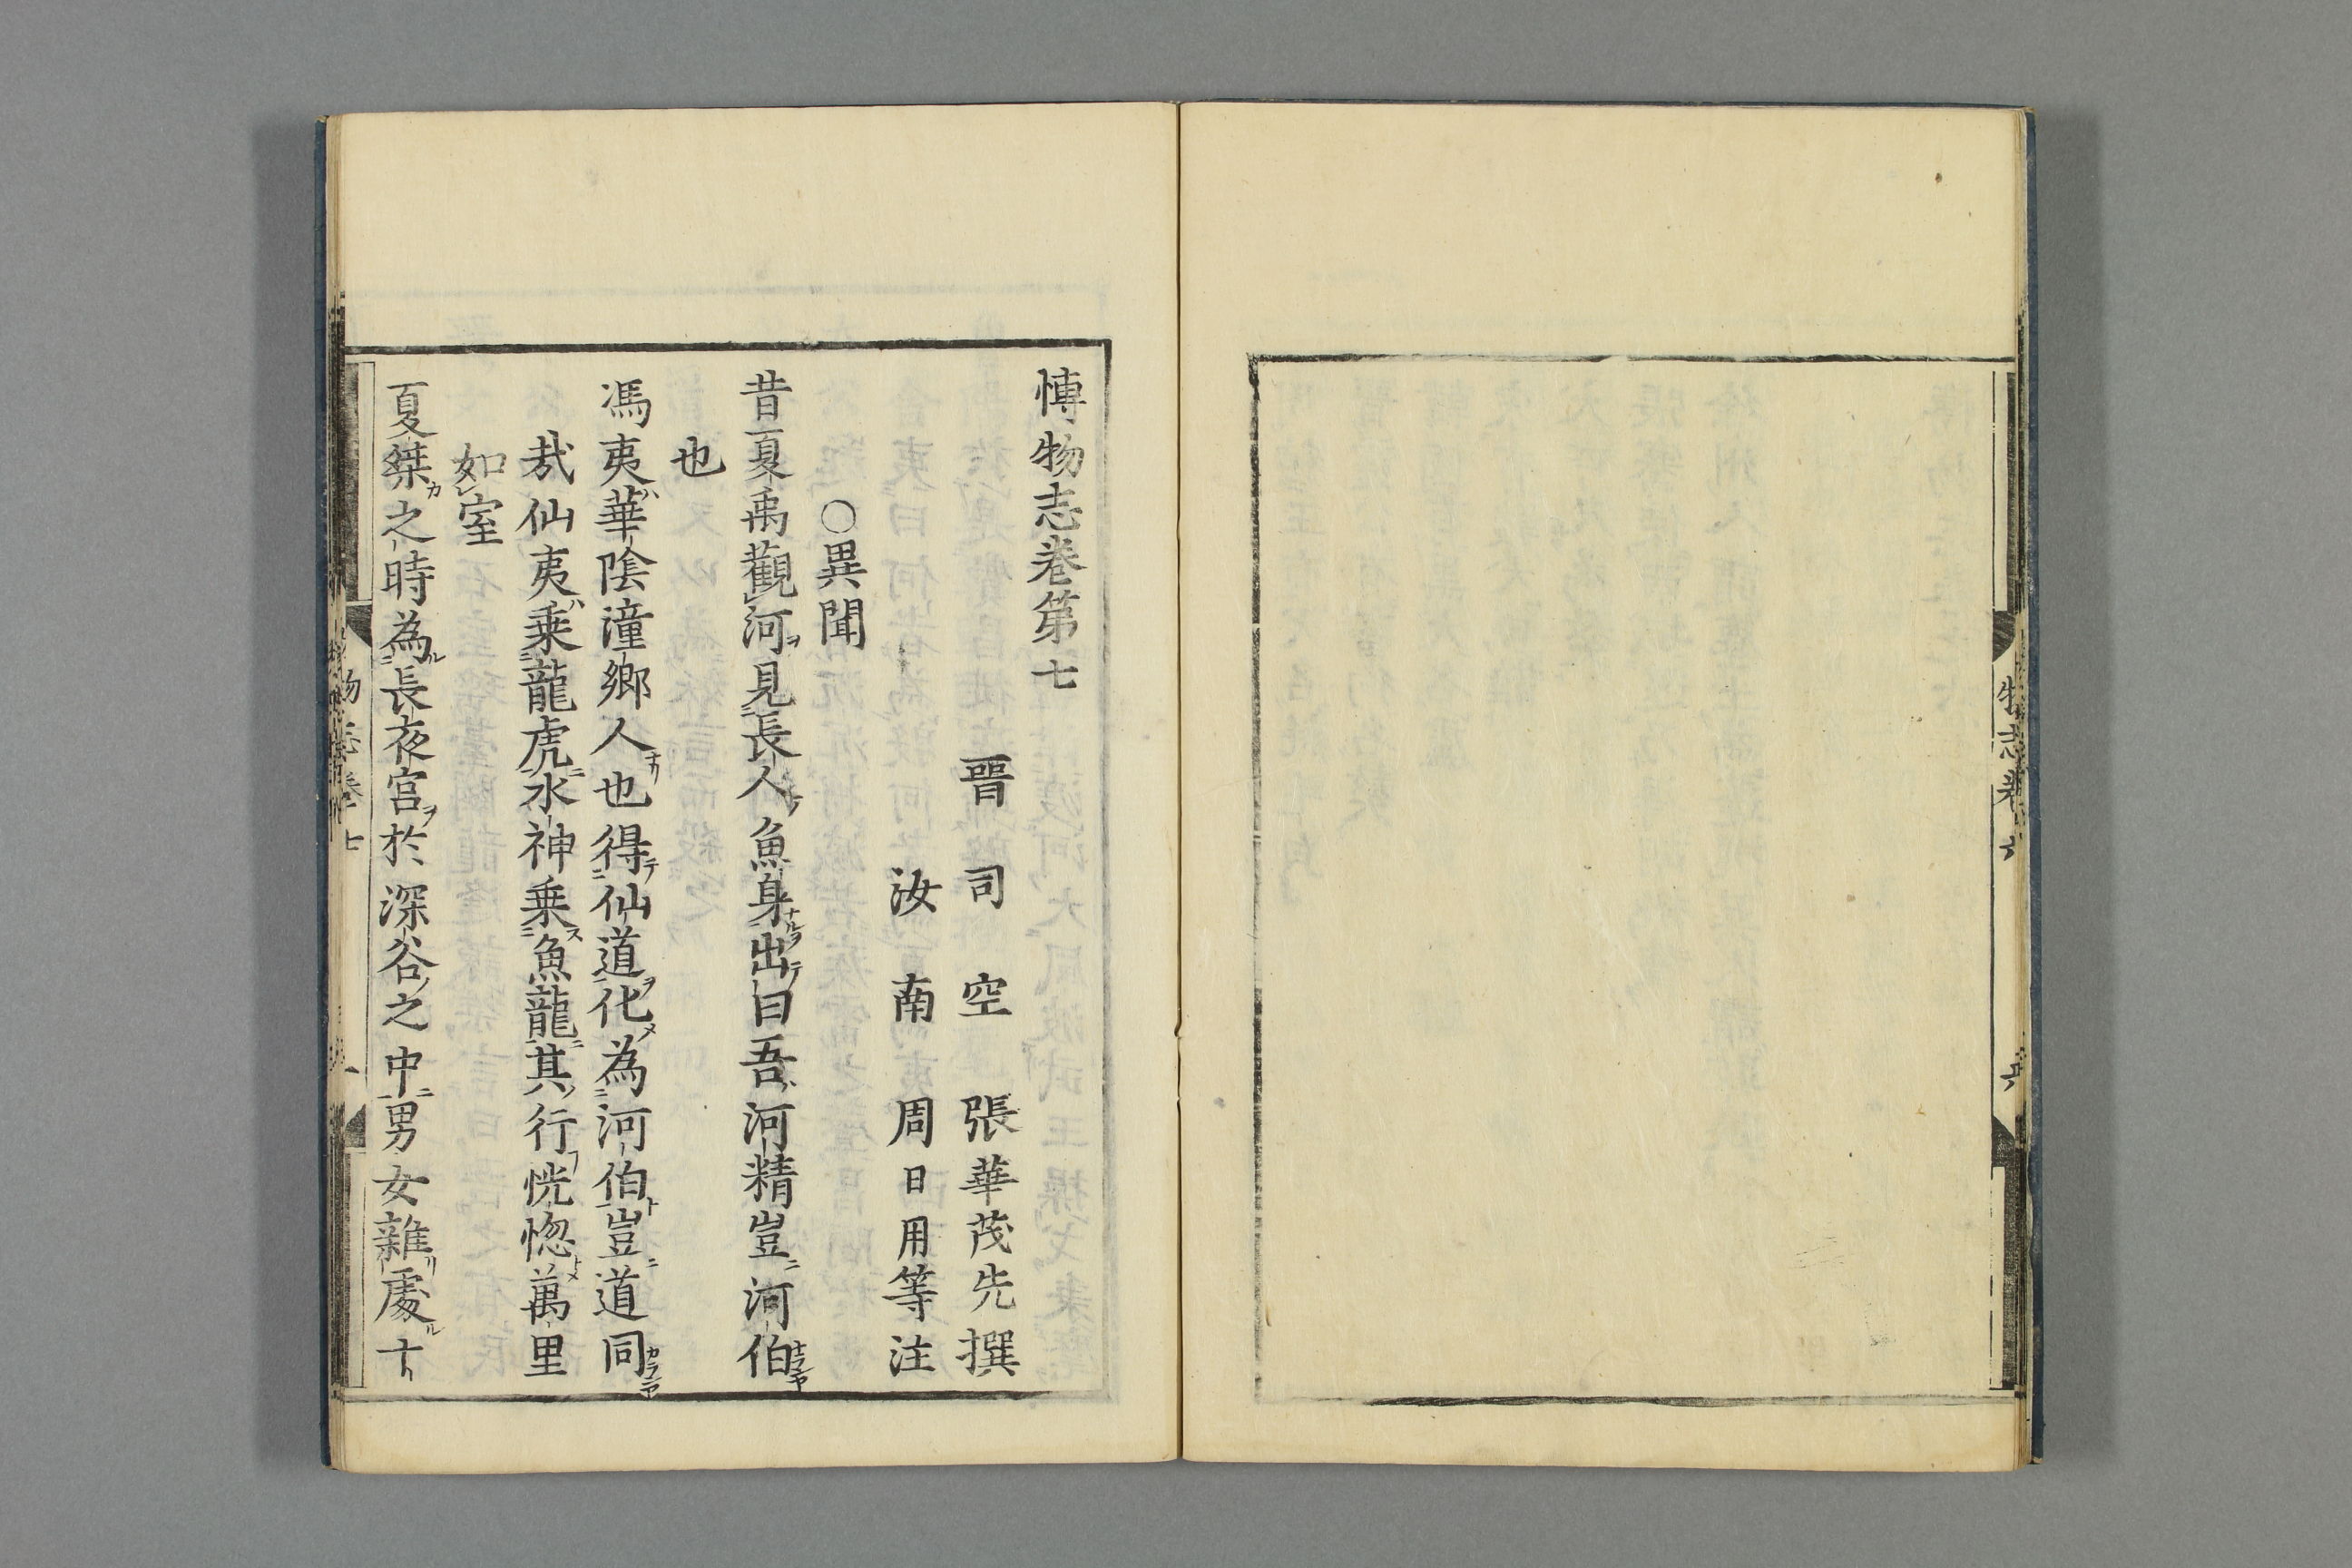 博物志卷第七
晋司空張華茂先撰
汝南周日用等注
○異聞
昔夏禹觀河見長人魚身出曰吾河精豈河伯
也
馮夷華陰潼鄉人也得仙道化為河伯豈道同
哉仙夷乗龍虎水神乗魚龍其行恍惚萬里
如室
夏桀之時為長夜宮於深谷之中男女雜處十